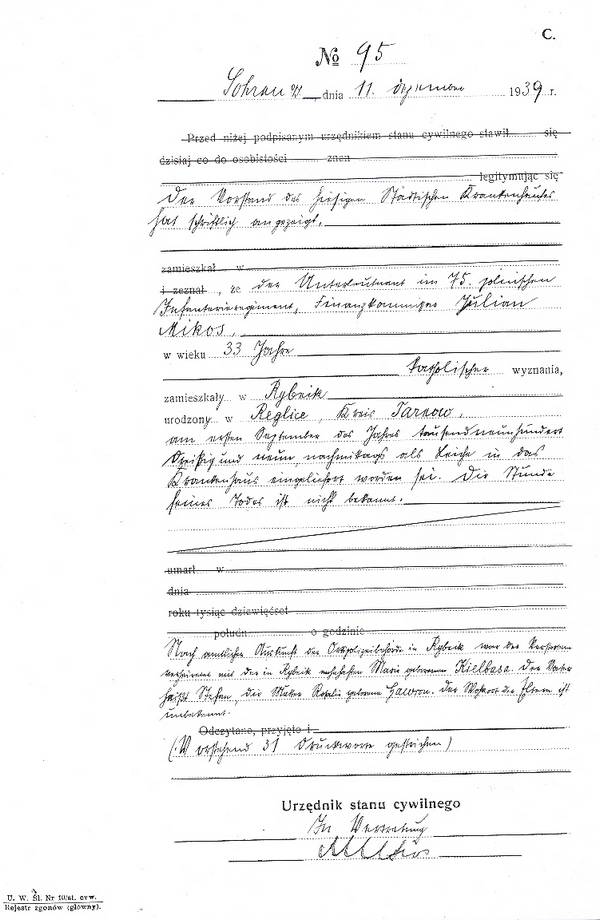 C.
№ 95
Sohrau O/S dnia 11 Dezember 1939 r.
Przed niżej podpisanym urzędnikiem stanu cywilnego stawił się
dzisiaj co do osobistości znan
legitymując się
Der Vorstand des hiesigen Städtischen Krankenhauses
hat schriftlich angezeigt,
zamieszkał w
i zeznał, że der Unterleutnant im 75. polnischen
Infanterieregiment, Finanzkommissar Julian
Mikos,
w wieku 33 Jahre
katholischer wyznania,
zamieszkały w Rybnik
urodzony w Reglice, Kreis Tarnow,
am ersten September des Jahres tausendneunhundert
dreißig und neun nachmittags als Leiche in das
Krankenhaus eingeliefert worden sei. Die Stunde
seines Todes ist nicht bekannt.
umarł w
dnia
roku tysiąc dziewięćset
połudn. o godzinie
Nach amtlicher Auskunft der Ortspolizeibehörde in Rybnik war der Verstorbene
verheiratet mit der in Rybnik wohnhaften Marie geborenen Kielbasa. Der Vater
heißt Stefan, die Mutter Rosalie geborene Gawron. Der Wohnort der Eltern ist
unbekannt.
Odczytano, przyjęto i
(: Vorstehend 31 Druckworte gestrichen)
Urzędnik stanu cywilnego
In Vertretung
U. W. Śl. Nr 10/st. cyw.
Rejestr zgonów (główny).